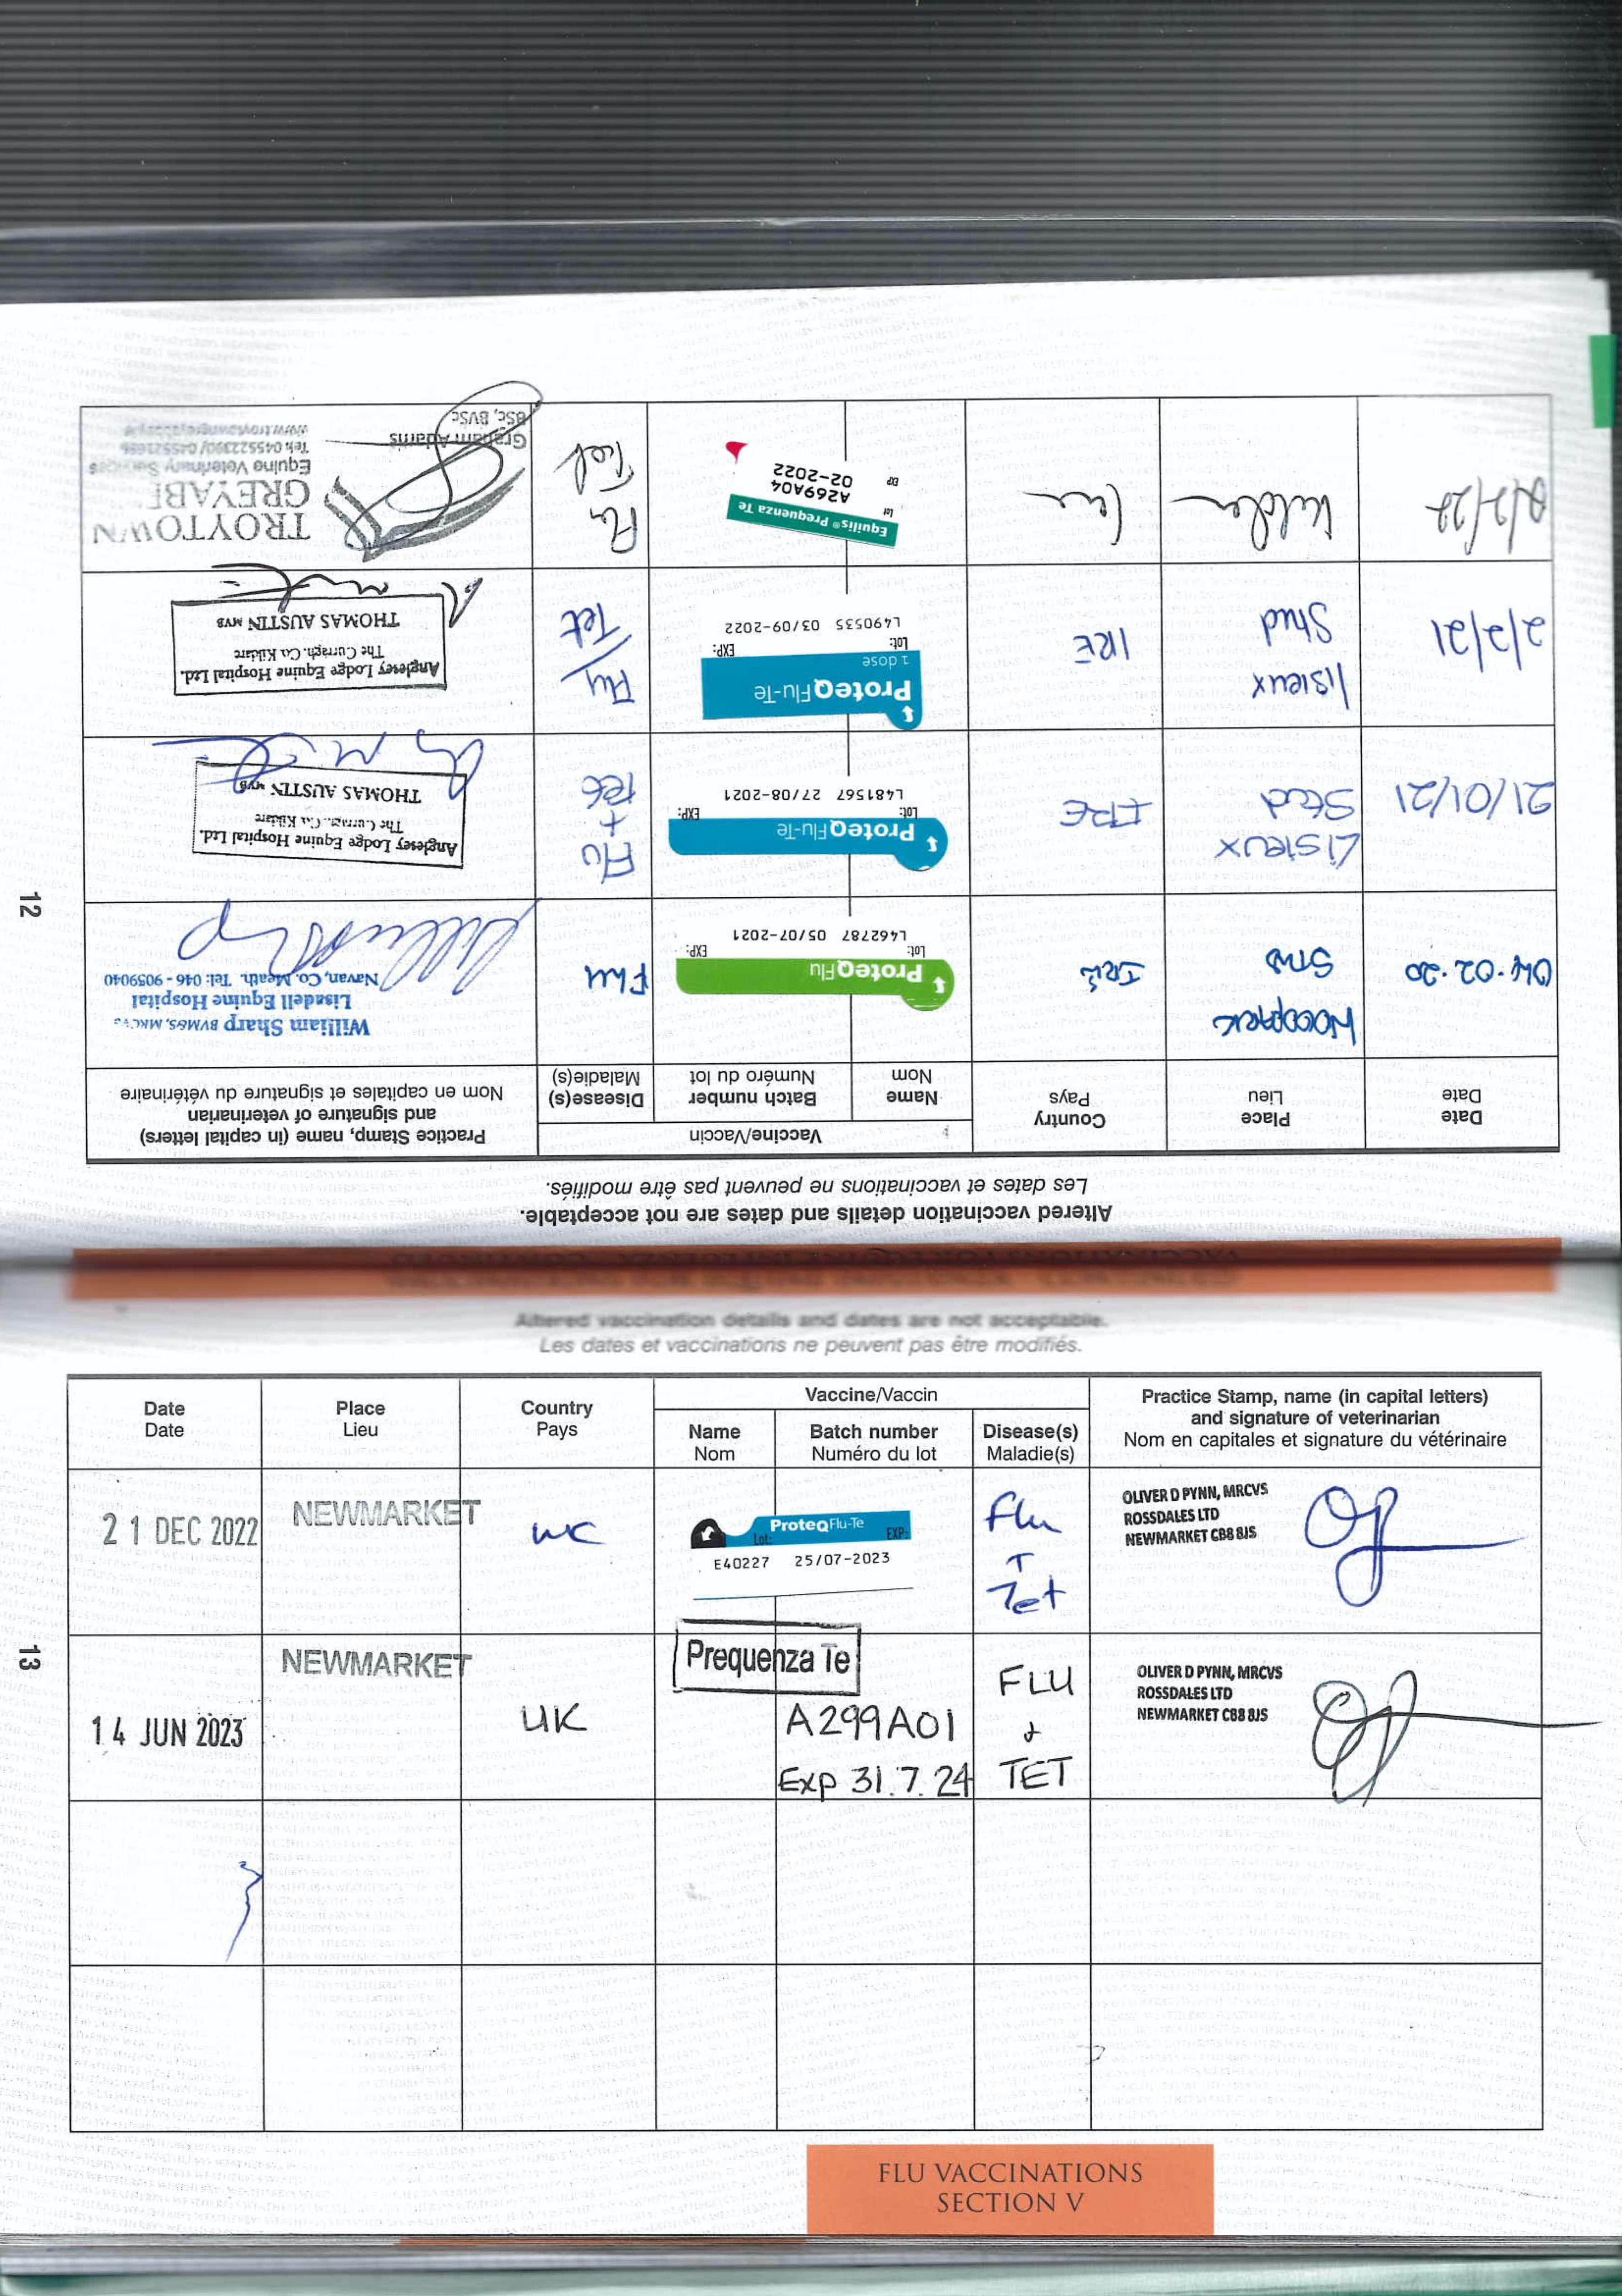 12
Altered vaccination details and dates are not acceptable.
Les dates et vaccinations ne peuvent pas être modifiés.
Date
Date
Place
Lieu
Country
Pays
Vaccine/Vaccin
Name
Nom
Batch number
Numéro du lot
Disease(s)
Maladie(s)
Practice Stamp, name (in capital letters)
and signature of veterinarian
Nom en capitales et signature du vétérinaire
04.02.20
WOODPARK
STUD
IRE
ProteqFlu
Lot: EXP:
L462787 05/07-2021
FLU
William Sharp BVM&S, MRCVS
Lisadell Equine Hospital
Navan, Co. Meath. Tel: 046 - 9059040
21/01/21
Lisieux
Stud
IRE
ProteqFlu-Te
Lot: EXP:
L481567 27/08-2021
Flu
+
Tet
Anglesey Lodge Equine Hospital Ltd.
The Curragh, Co. Kildare
THOMAS AUSTIN MVB
2/2/21
Lisieux
Stud
IRE
ProteqFlu-Te
1 dose
Lot: EXP:
L490535 03/09-2022
Flu/
Tet
Anglesey Lodge Equine Hospital Ltd.
The Curragh, Co. Kildare
THOMAS AUSTIN MVB
Kildare
Equilis® Prequenza Te
lot
A269A04
exp
02-2022
Flu
Tet
TROYTOWN
GREYABBEY
Equine Veterinary Services
Graham Adams
BSc, BVSc
13
Altered vaccination details and dates are not acceptable.
Les dates et vaccinations ne peuvent pas être modifiés.
Date
Date
Place
Lieu
Country
Pays
Vaccine/Vaccin
Name
Nom
Batch number
Numéro du lot
Disease(s)
Maladie(s)
Practice Stamp, name (in capital letters)
and signature of veterinarian
Nom en capitales et signature du vétérinaire
21 DEC 2022
NEWMARKET
UK
ProteqFlu-Te
Lot: EXP:
E40227 25/07-2023
Flu
+
Tet
OLIVER D PYNN, MRCVS
ROSSDALES LTD
NEWMARKET CB8 8JS
14 JUN 2023
NEWMARKET
UK
Prequenza Te
A299A01
Exp 31.7.24
FLU
+
TET
OLIVER D PYNN, MRCVS
ROSSDALES LTD
NEWMARKET CB8 8JS
FLU VACCINATIONS
SECTION V